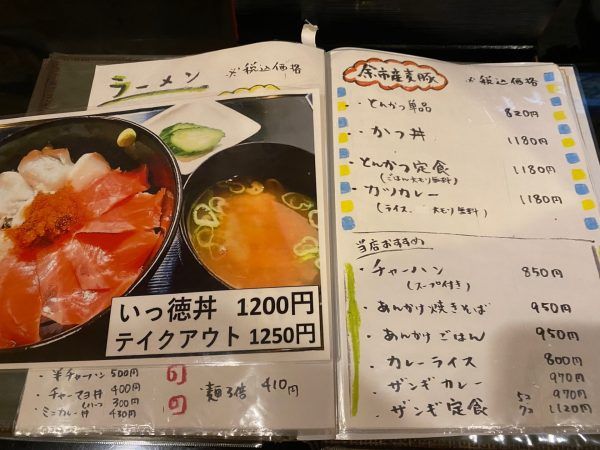 ラーメン
※税込価格
いっ徳丼 1200円
テイクアウト 1250円
半チャーハン 500円
チャーマヨ丼 400円
300円
ミニカレー丼 430円
麺
410円
余市産麦豚
※税込価格
・とんかつ単品 820円
・かつ丼 1180円
・とんかつ定食 1180円
(ごはん大もり無料)
・カツカレー 1180円
(ライス 大モリ無料)
当店おすすめ
・チャーハン 850円
(スープ付き)
・あんかけ焼きそば 950円
・あんかけごはん 950円
・カレーライス 800円
・ザンギカレー 970円
・ザンギ定食 5コ 970円
7コ 1120円